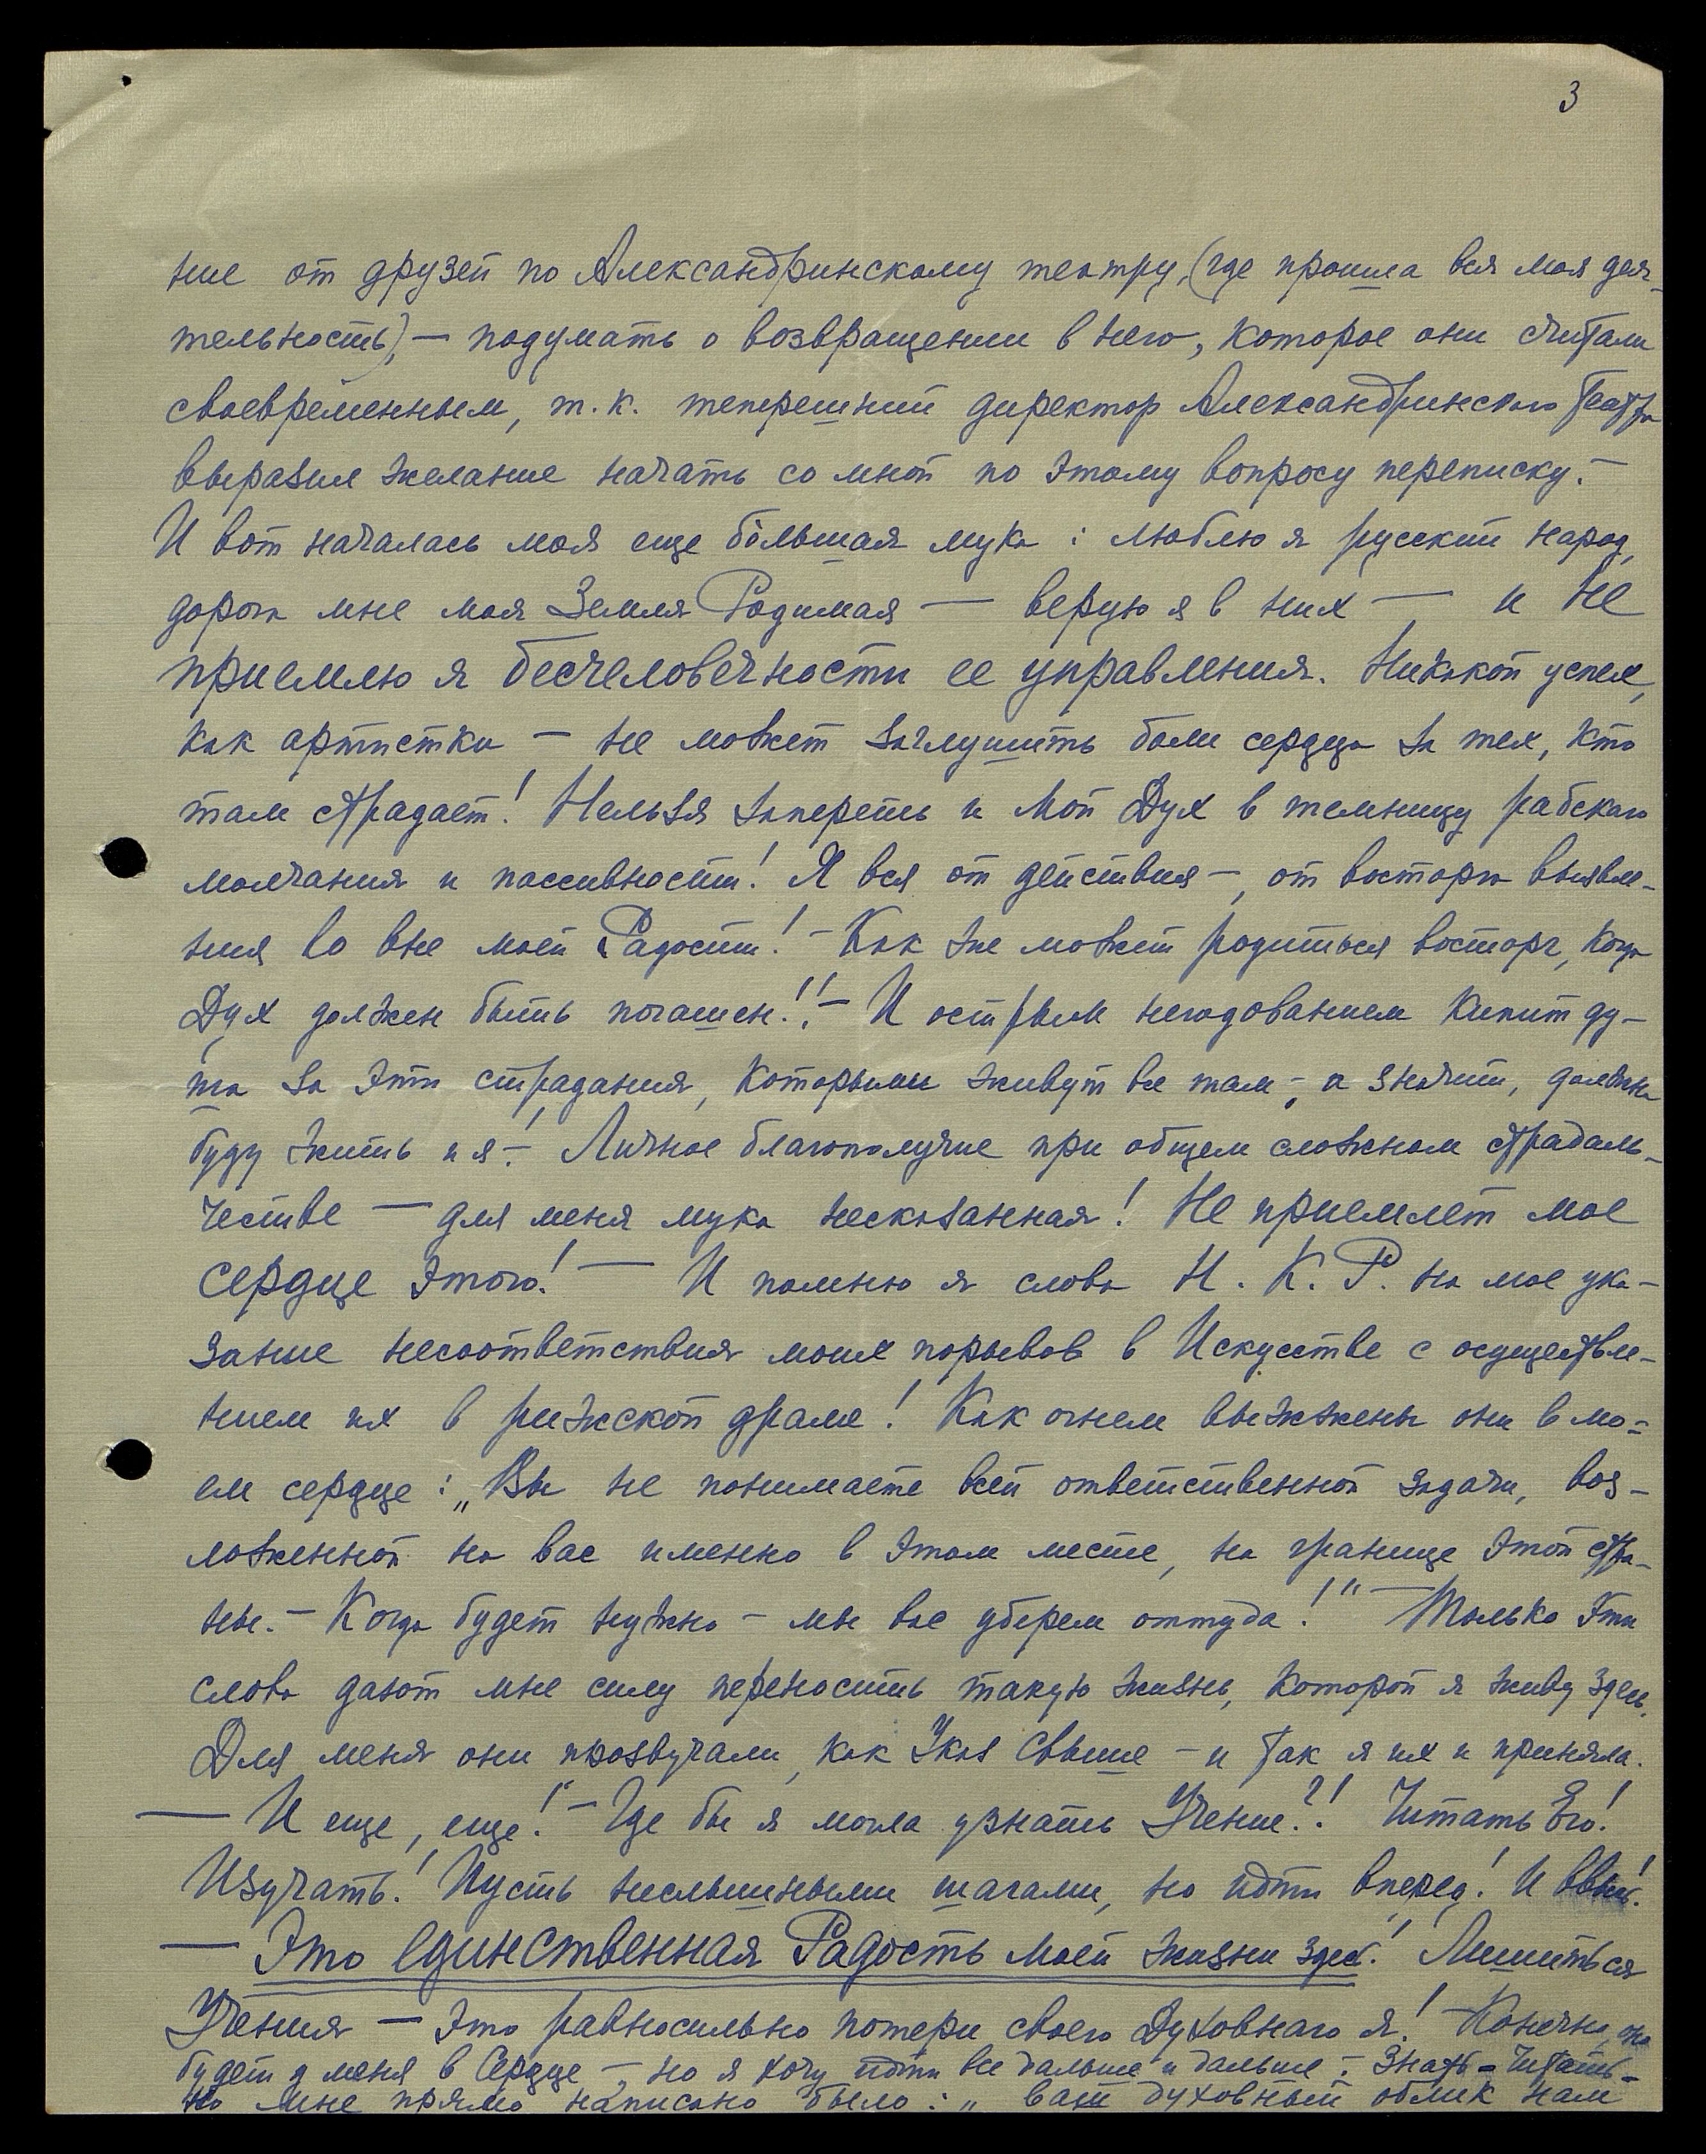 3
ние от друзей по Александринскому театру, (где прошла вся моя дея-
тельность), — подумать о возвращении в него, которое они считали
своевременным, т.к. теперешний директор Александринского Театра
выразил желание начать со мной по этому вопросу переписку. —
И вот началась моя еще бо́льшая мука: люблю я русский народ,
дорога мне моя Земля Родимая — верую я в них — и не
приемлю я бесчеловечности ее управления. Никакой успех,
как артистки — не может заглушить боли сердца за тех, кто
там страдает! Нельзя запереть и мой Дух в темницу рабского
молчания и пассивности! Я вся от действия —, от восторга выявле-
ния во вне моей Радости! — Как же может родиться восторг, когда
Дух должен быть погашен!! — И острым негодованием кипит ду-
ша за эти страдания, которыми живут все там —, а значит, должна
буду жить и я —! Личное благополучие при общем сложном страдаль-
честве — для меня мука несказанная! Не приемлет мое
сердце этого! — И помню я слова Н. К. Р. на мое ука-
зание несоответствия моих порывов в Искусстве с осуществле-
нием их в рижской драме! Как огнем выжжены они в мо-
ем сердце: „Вы не понимаете всей ответственной задачи, воз-
ложенной на вас именно в этом месте, на границе этой стра-
ны. — Когда будет нужно — мы вас уберем оттуда!" — Только эти
слова дают мне силу переносить такую жизнь, которой я живу здесь.
Для меня они прозвучали, как Указ Свыше — и так я их и приняла.
— И еще, еще! — Где бы я могла узнать Учение?! Читать Его!
Изучать! Пусть неслышными шагами, но идти вперед! И ввысь!
— Это единственная Радость моей жизни здесь! Лишиться
Учения — это равносильно потери своего Духовнаго я! — Конечно, оно
будет у меня в Сердце —, но я хочу идти все дальше и дальше —: Знать — Читать —
Но мне прямо написано было: „ваш духовный облик нам